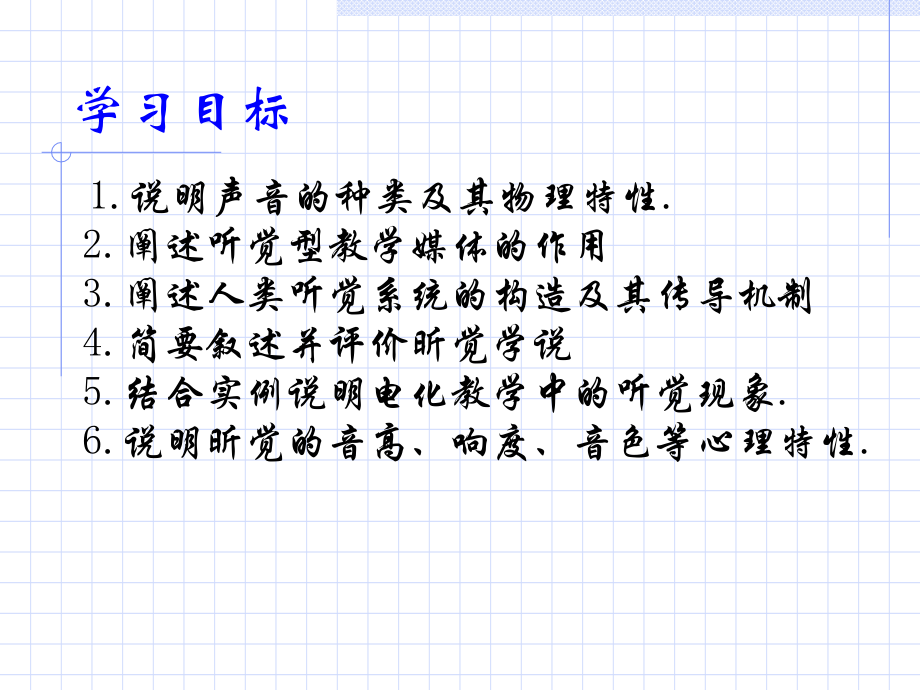 学习目标
1.说明声音的种类及其物理特性.
2.阐述听觉型教学媒体的作用
3.阐述人类听觉系统的构造及其传导机制
4.简要叙述并评价昕觉学说
5.结合实例说明电化教学中的听觉现象.
6.说明昕觉的音高、响度、音色等心理特性.